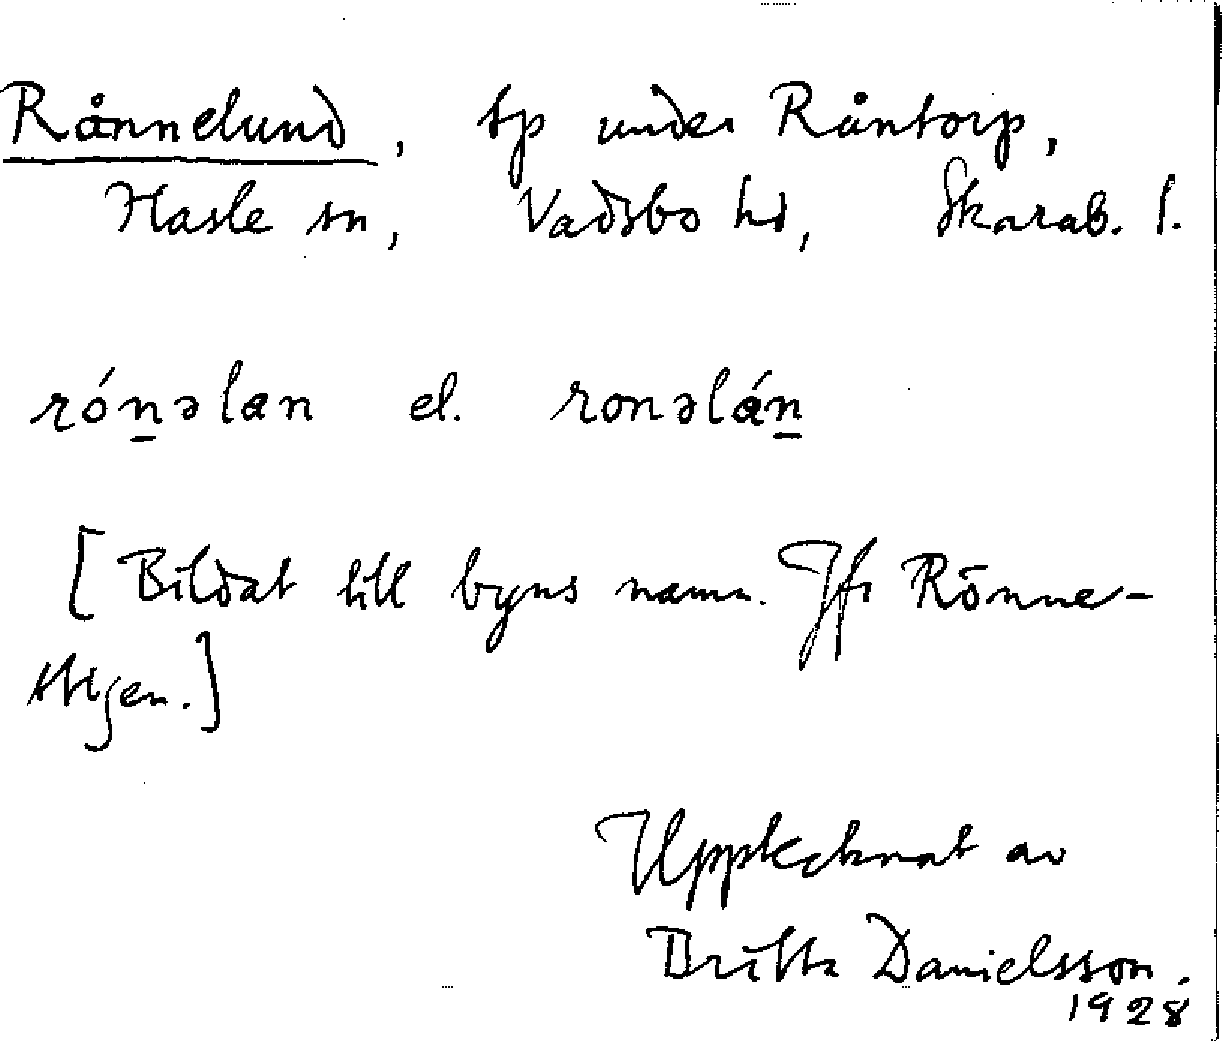 Rånnelund, tp under Råntorp,
Hasle sn, Vadsbo hd, Skarab. l.
róṉəlan el. ronəláṉ
[Bildat till byns namn. Jfr Rönne-
stigen.]
Upptecknat av
Britta Danielsson.
1928